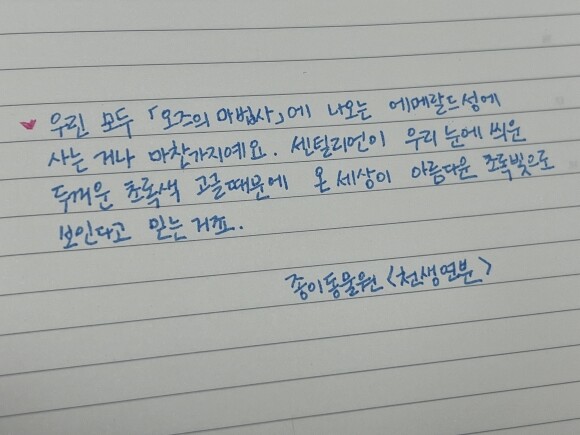 우린 모두 「오즈의 마법사」에 나오는 에메랄드성에
사는 거나 마찬가지예요. 센틸리언이 우리 눈에 씌운
두꺼운 초록색 고글때문에 온 세상이 아름다운 초록빛으로
보인다고 믿는 거죠.
종이동물원 <천생연분>